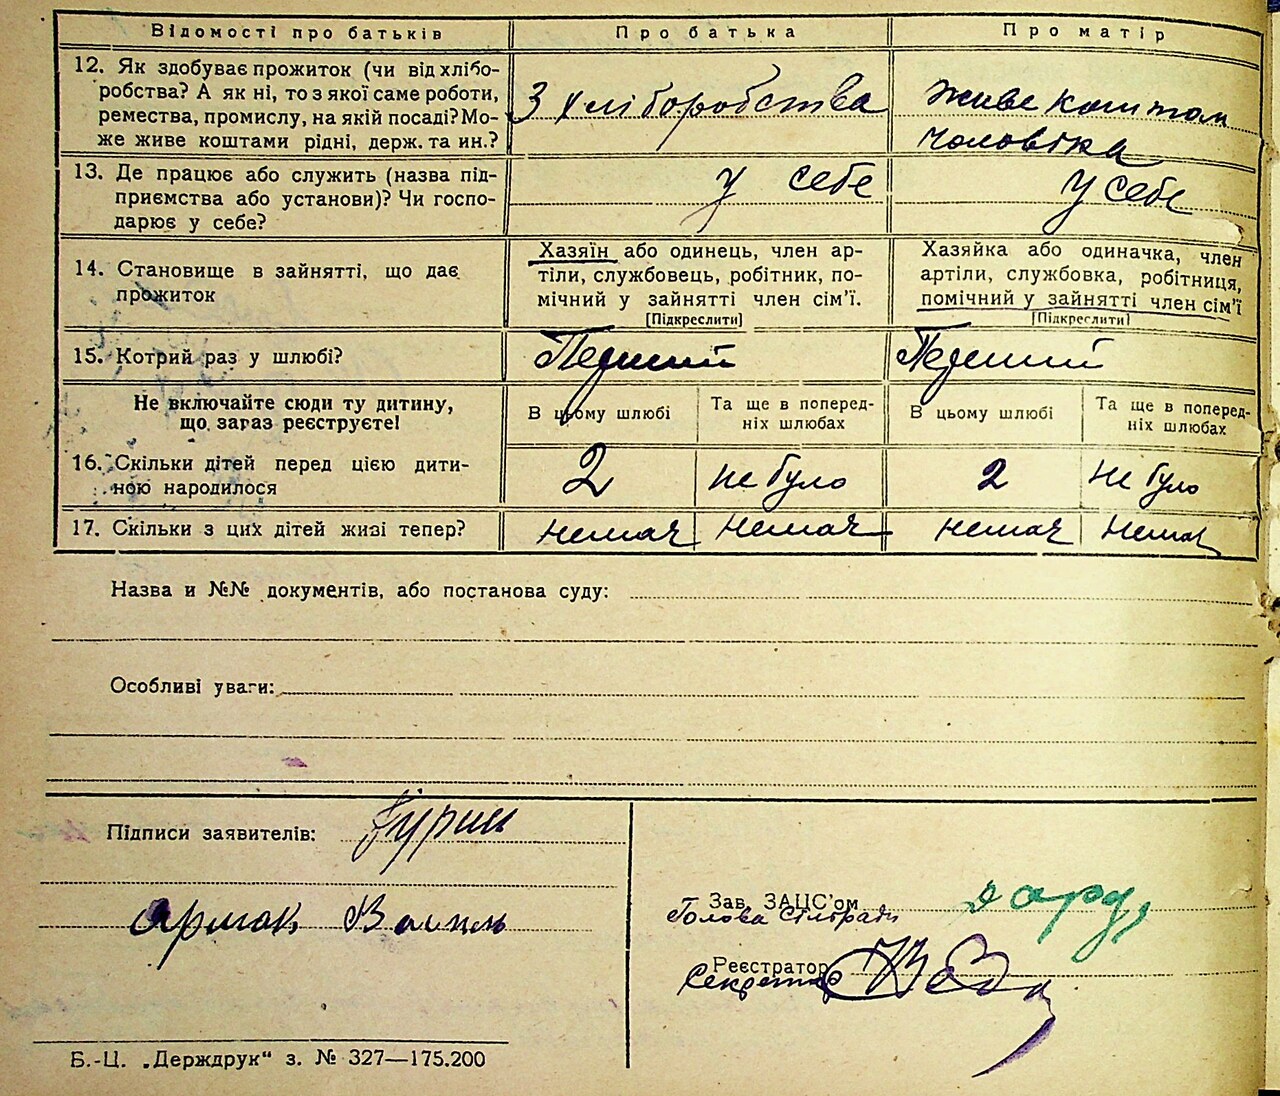 Відомості про батьків Про батька Про матір
12. Як здобуває прожиток (чи від хлібо-
робства? А як ні, то з якої саме роботи,
ремества, промислу, на якій посаді? Мо-
же живе коштами рідні, держ. та ин.?
З хліборобства
живе коштом
чоловіка
13. Де працює або служить (назва під-
приємства або установи)? Чи госпо-
дарює у себе?
у себе
у себе
14. Становище в зайнятті, що дає
прожиток
Хазяїн або одинець, член ар-
тіли, службовець, робітник, по-
мічний у зайнятті член сім'ї.
[Підкреслити]
Хазяйка або одиначка, член
артіли, службовка, робітниця,
помічний у зайнятті член сім'ї
[Підкреслити]
15. Котрий раз у шлюбі?
Перший
Перший
Не включайте сюди ту дитину,
що зараз реєструєте!
В цьому шлюбі
Та ще в поперед-
ніх шлюбах
В цьому шлюбі
Та ще в поперед-
ніх шлюбах
16. Скільки дітей перед цією дити-
ною народилося
2 не було 2 не було
17. Скільки з цих дітей живі тепер?
немає немає немає немає
Назва и №№ документів, або постанова суду:
Особливі уваги:
Підписи заявителів:
Ярмак Василь
Зав. ЗАЦС'ом
Голова Сільради
Реєстратор
Секретар
Б.-Ц. „Держдрук“ з. № 327—175.200